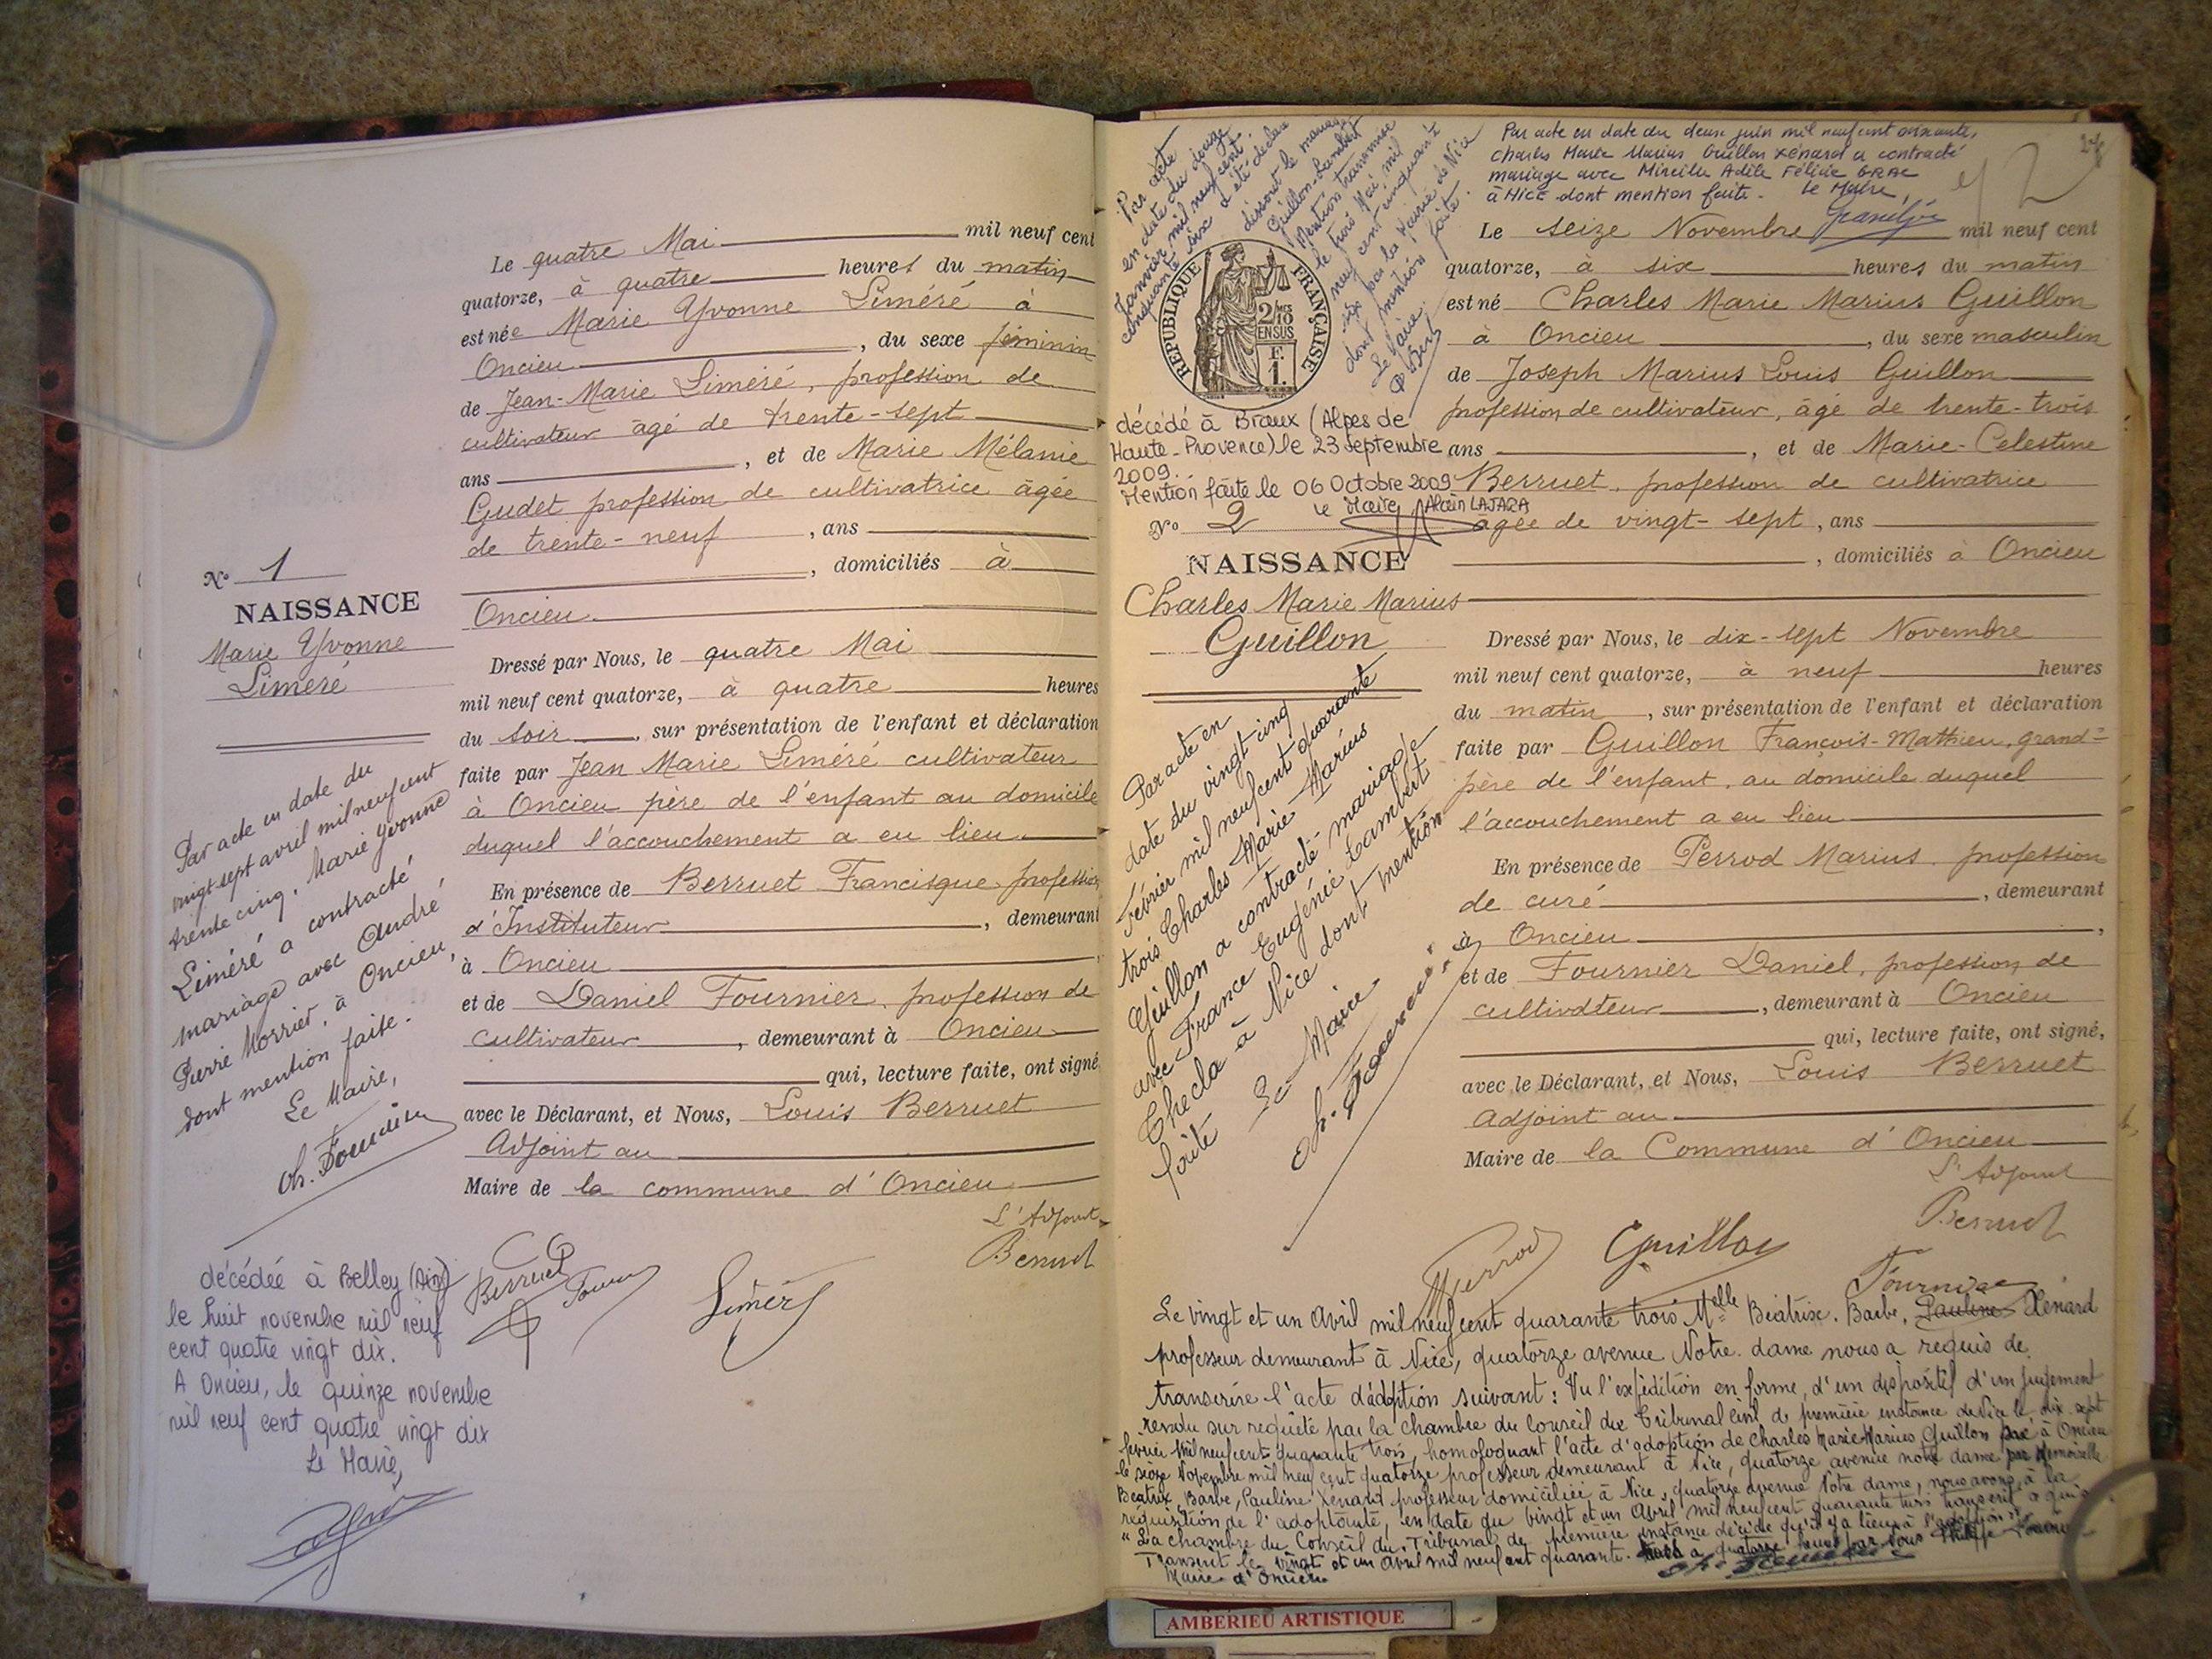 Le quatre Mai mil neuf cent
quatorze, à quatre heures du matin
est née Marie Yvonne Liméré à
Oncieu, du sexe féminin
de Jean-Marie Liméré, profession de
cultivateur âgé de trente-sept
ans, et de Marie Mélanie
Gudet profession de cultivatrice âgée
de trente-neuf, ans
, domiciliés à
Oncieu
No 1
NAISSANCE
Marie Yvonne
Liméré
Dressé par Nous, le quatre Mai
mil neuf cent quatorze, à quatre heures
du soir, sur présentation de l'enfant et déclaration
faite par Jean Marie Liméré cultivateur
à Oncieu père de l'enfant au domicile
duquel l'accouchement a eu lieu
En présence de Berruet Francisque, profession
d'Instituteur, demeurant
à Oncieu
et de Daniel Fournier, profession de
cultivateur, demeurant à Oncieu
qui, lecture faite, ont signé
avec le Déclarant, et Nous, Louis Berruet
Adjoint au
Maire de la commune d'Oncieu
L'Adjoint
Berruet
Berruet
Liméré
Par acte en date du
vingt sept avril mil neuf cent
trente cinq, Marie Yvonne
Liméré a contracté
mariage avec André
Pierre Morrier, à Oncieu,
dont mention faite.
Le Maire,
décédée à Belley (Ain)
le huit novembre mil neuf
cent quatre vingt dix.
A Oncieu, le quinze novembre
mil neuf cent quatre vingt dix
Le Maire,
Par acte en date du deux juin mil neuf cent soixante,
Charles Marie Marius Guillon Xénard a contracté
mariage avec Mireille Adèle Félicie GRAC
à NICE dont mention faite. Le Maire,
Par acte
en date du douze
Janvier mil neuf cent
cinquante six a été déclaré
dissout le mariage
Guillon-Lambert
Mention transmise
le trois Mai mil
neuf cent cinquante
six par la Mairie de Nice
dont mention faite.
Le Maire
RÉPUBLIQUE FRANÇAISE
2/10
EN SUS
F.
1.
décédé à Braux (Alpes de
Haute-Provence) le 23 septembre
2009.
Mention faite le 06 Octobre 2009
Le Maire Alain LAJARA
No 2
NAISSANCE
Charles Marie Marius
Guillon
Le seize Novembre mil neuf cent
quatorze, à six heures du matin
est né Charles Marie Marius Guillon
à Oncieu, du sexe masculin
de Joseph Marius Louis Guillon
profession de cultivateur, âgé de trente-trois
ans, et de Marie-Celestine
Berruet, profession de cultivatrice
âgée de vingt-sept, ans
, domiciliés à Oncieu
Dressé par Nous, le dix-sept Novembre
mil neuf cent quatorze, à neuf heures
du matin, sur présentation de l'enfant et déclaration
faite par Guillon François-Mathieu, grand=
père de l'enfant, au domicile duquel
l'accouchement a eu lieu
En présence de Perrod Marius, profession
de curé, demeurant
à Oncieu,
et de Fournier Daniel, profession de
cultivateur, demeurant à Oncieu
qui, lecture faite, ont signé,
avec le Déclarant, et Nous, Louis Berruet
Adjoint au
Maire de la Commune d'Oncieu
L'Adjoint
Berruet
Perrod
Guillon
Fournier
Par acte en
date du vingt cinq
Février mil neuf cent quarante
trois Charles Marie Marius
Guillon a contracté mariage
avec France Eugénie Lambert
Thecla à Nice dont mention
faite Le Maire
Le vingt et un Avril mil neuf cent quarante trois Melle Béatrix. Barbe, Pauline Xénard
professeur demeurant à Nice, quatorze avenue Notre-dame nous a requis de
transcrire l'acte d'adoption suivant : Vu l'expédition en forme, d'un dispositif d'un jugement
rendu sur requête par la chambre du Conseil du Tribunal Civil de première instance de Nice le dix-sept
février mil neuf cent quarante trois, homologuant l'acte d'adoption de Charles Marie Marius Guillon né à Oncieu
le seize Novembre mil neuf cent quatorze professeur demeurant à Nice, quatorze avenue notre dame par Demoiselle
Béatrix, Barbe, Pauline Xénard professeur domiciliée à Nice, quatorze avenue Notre dame, nous avons, à la
réquisition de l'adoptante, en date du vingt et un Avril mil neuf cent quarante trois transcrit
"La chambre du Conseil du Tribunal de première instance décide qu'il y a lieu à l'adoption"
Transcrit le vingt et un Avril mil neuf cent quarante-trois à quatorze heures par nous
Maire d'Oncieu
AMBERIEU ARTISTIQUE